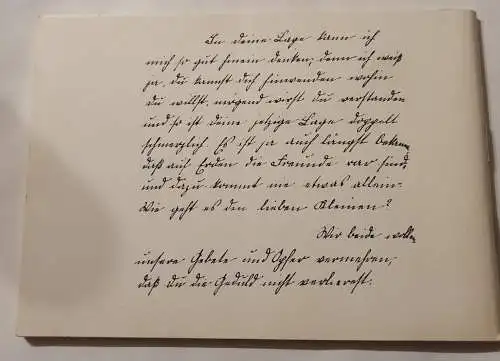 In deine Lage kann ich
mich so gut hinein denken; denn ich weiß
ja, du kannst dich hinwenden wohin
du willst, nirgend wirst du verstanden
und so ist deine jetzige Lage doppelt
schmerzlich. Es ist ja auch längst bekannt,
daß auf Erden die Freunde rar sind,
und dazu kommt nie etwas allein.
Wie geht es den lieben Kleinen?
Wir beide wollen
unsere Gebete und Opfer vermehren,
daß du die Geduld nicht verlierest.